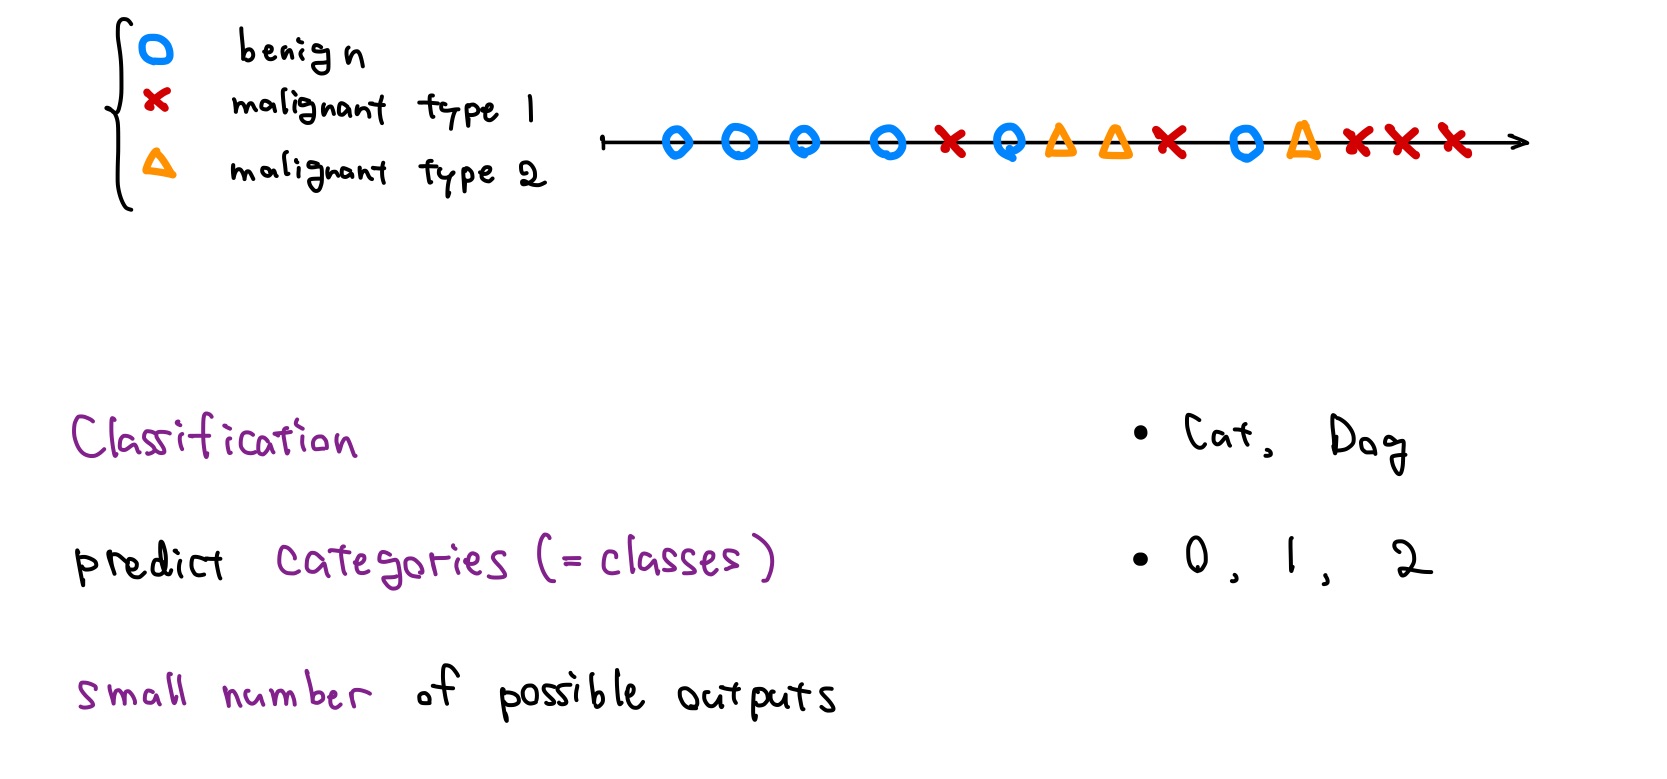 benign
malignant type 1
malignant type 2
Classification
predict categories (= classes)
small number of possible outputs
• Cat, Dog
• 0, 1, 2